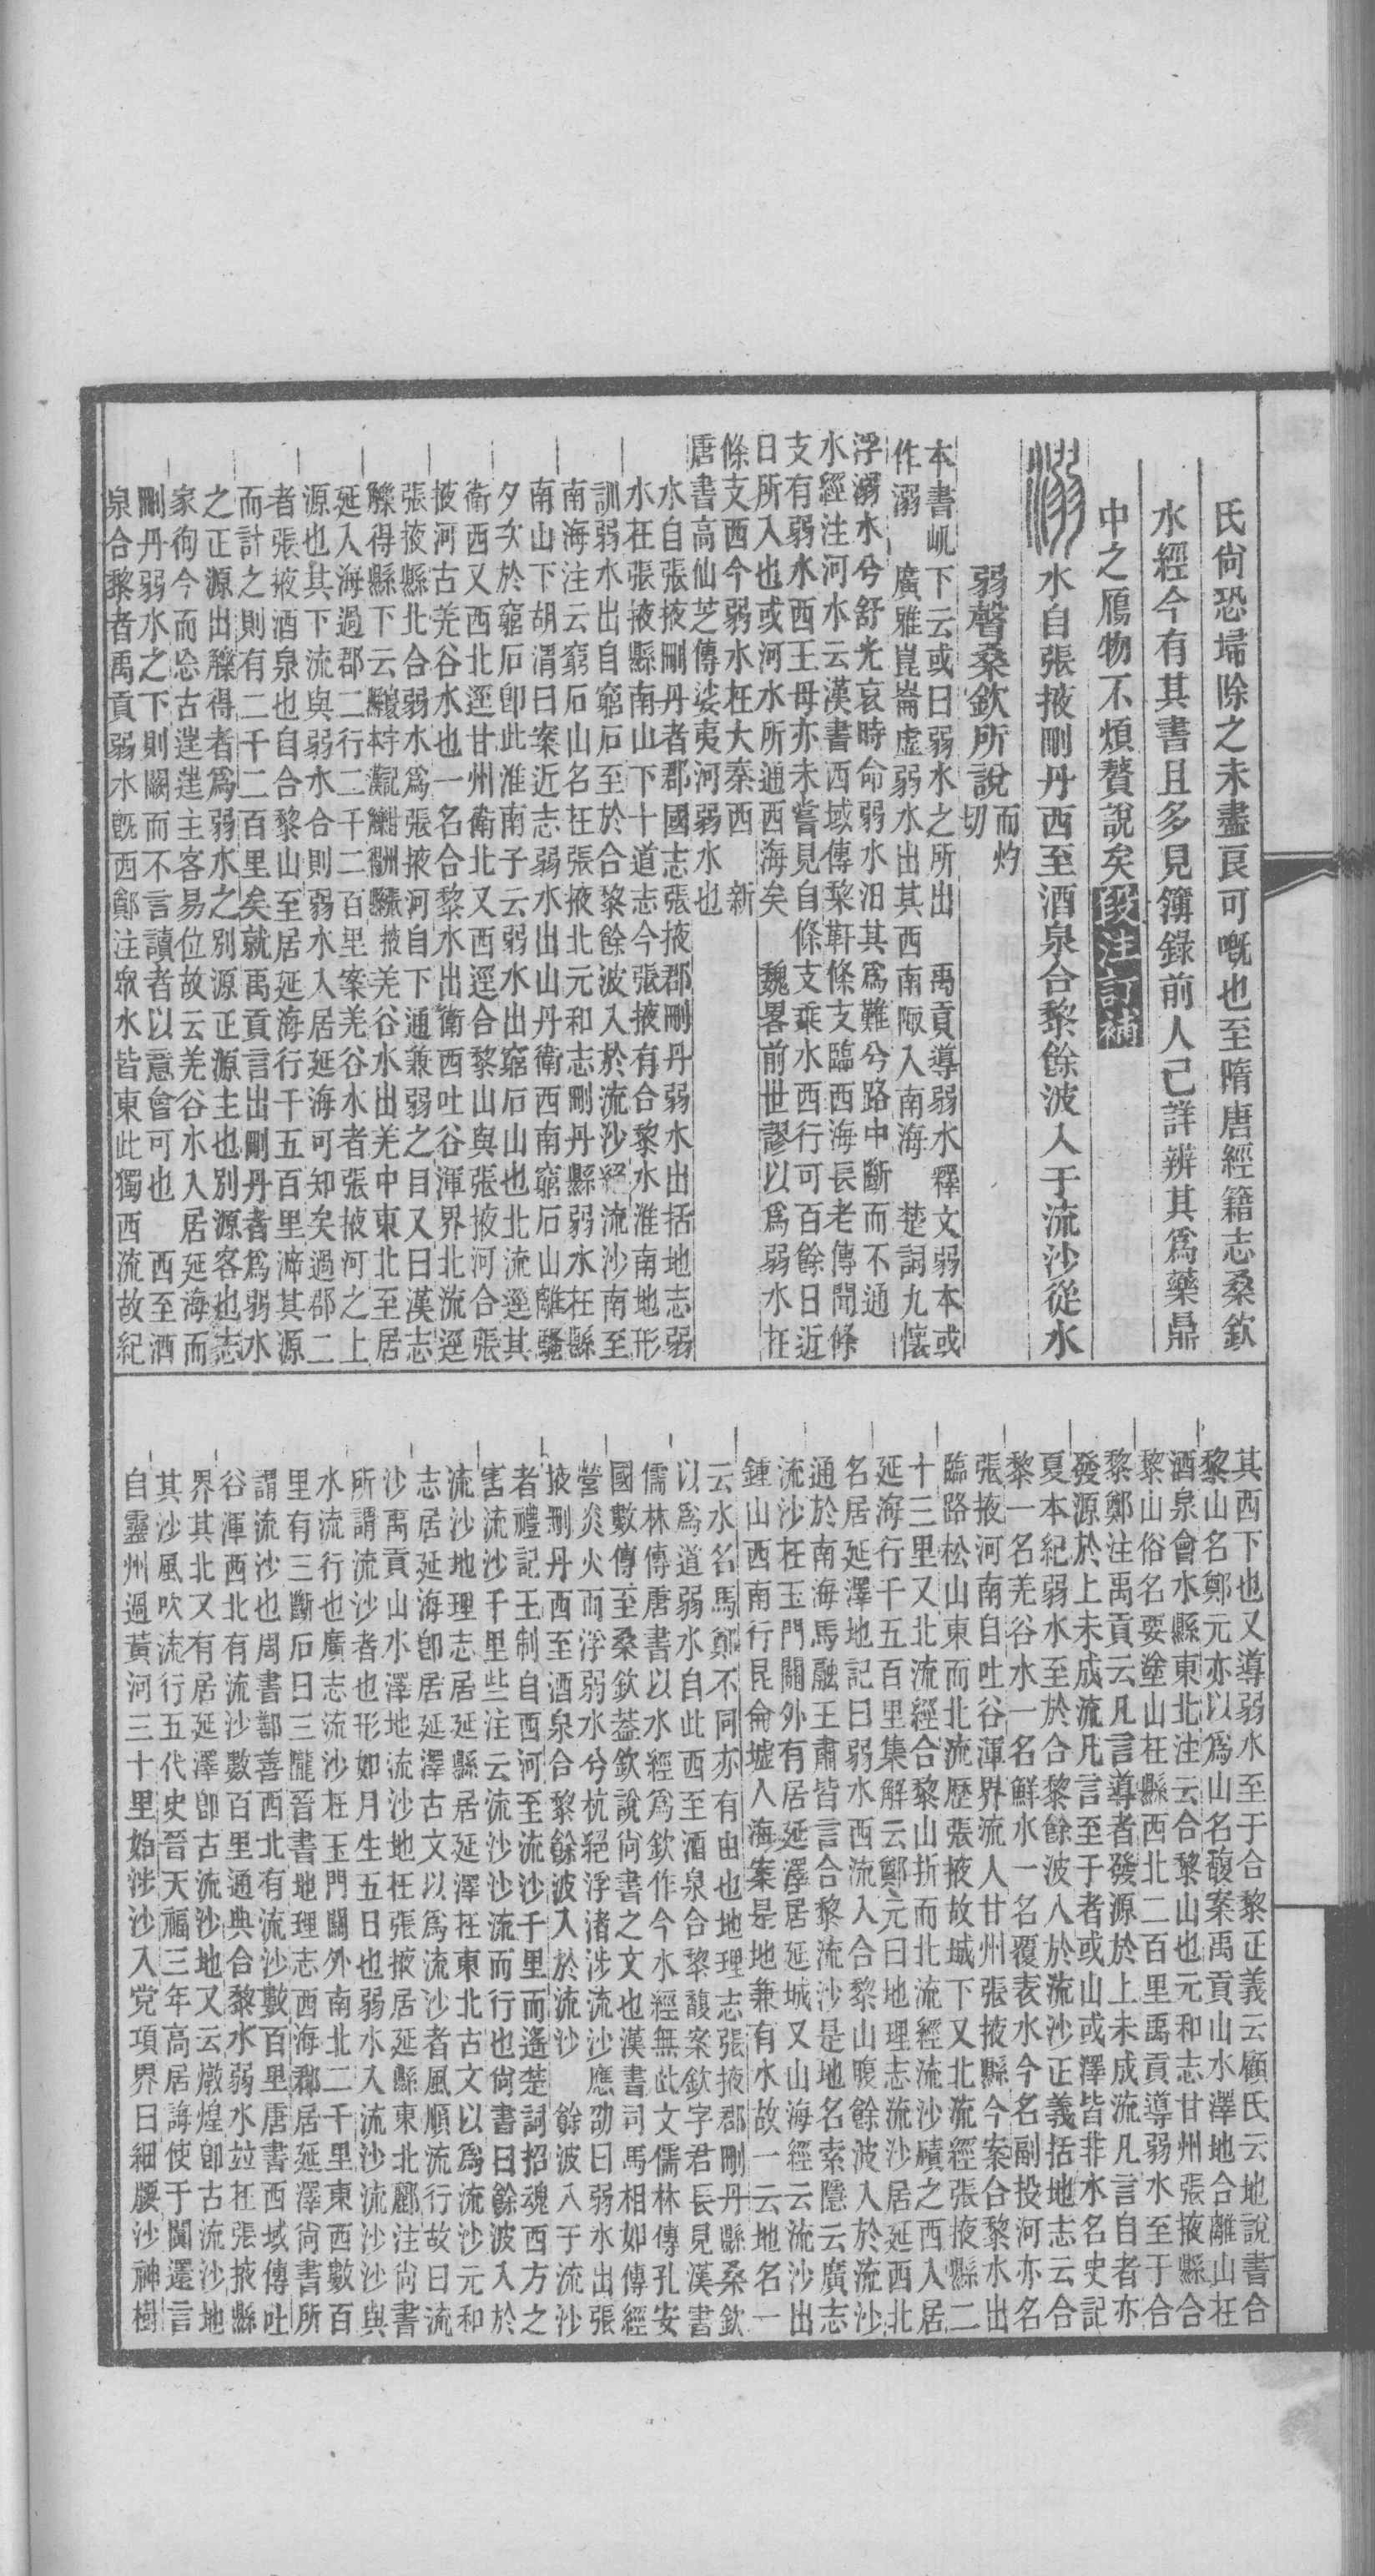 氏尙恐埽除之未盡良可嘅也至隋唐經籍志桑欽
水經今有其書且多見簿錄前人已詳辨其爲藥鼎
中之鴈物不煩贅說矣段注訂補
溺水自張掖刪丹西至酒泉合黎餘波入于流沙從水
弱聲桑欽所說而灼切
本書屼下云或曰弱水之所出
作溺
禹貢導弱水釋文弱本或
廣雅崑崙虛弱水出其西南陬入南海
楚詞九懷
浮溺水兮舒光哀時命弱水汨其爲難兮路中斷而不通
水經注河水云漢書西域傳黎軒條支臨西海長老傳聞條
支有弱水西王母亦未嘗見自條支乘水西行可百餘日近
日所入也或河水所通西海矣
魏畧前世謬以爲弱水在
條支西今弱水在大秦西
新
唐書高仙芝傳娑夷河弱水也
水自張掖刪丹者郡國志張掖郡刪丹弱水出括地志弱
水在張掖縣南山下十道志今張掖有合黎水淮南地形
訓弱水出自窮石至於合黎餘波入於流沙絕流沙南至
南海注云窮石山名在張掖北元和志刪丹縣弱水在縣
南山下胡渭曰案近志弱水出山丹衛西南窮石山離騷
夕次於窮石卽此淮南子云弱水出窮石山也北流逕其
衛西又西北逕甘州衛北又西逕合黎山與張掖河合張
掖河古羌谷水也一名合黎水出衛西吐谷渾界北流逕
張掖縣北合弱水爲張掖河自下通兼弱之目又曰漢志
觻得縣下云羌谷水出羌中東北至居
延入海過郡二行二千二百里案羌谷水者張掖河之上
源也其下流與弱水合則弱水入居延海可知矣過郡二
者張掖酒泉也自合黎山至居延海行千五百里渧其源
而計之則有二千二百里矣就禹貢言出刪丹者爲弱水
之正源出觻得者爲弱水之別源正源主也別源客也志
家徇今而忘古遂主客易位故云羌谷水入居延海而
刪丹弱水之下則闕而不言讀者以意會可也
西至酒
泉合黎者禹貢弱水旣西鄭注眾水皆東此獨西流故紀
其西下也又導弱水至于合黎正義云顧氏云地說書合
黎山名鄭元亦以爲山名馥案禹貢山水澤地合離山在
酒泉會水縣東北注云合黎山也元和志甘州張掖縣合
黎山俗名要塗山在縣西北二百里禹貢導弱水至于合
黎鄭注禹貢云凡言導者發源於上未成流凡言自者亦
發源於上未成流凡言至于者或山或澤皆非水名史記
夏本紀弱水至於合黎餘波入於流沙正義括地志云合
黎一名羌谷水一名鮮水一名覆表水今名副投河亦名
張掖河南自吐谷渾界流入甘州張掖縣今案合黎水出
臨路松山東而北流歷張掖故城下又北流經張掖縣二
十三里又北流經合黎山折而北流經流沙磧之西入居
延海行千五百里集解云鄭元曰地理志流沙居延西北
名居延澤地記曰弱水西流入合黎山腹餘波入於流沙
通於南海馬融王肅皆言合黎流沙是地名索隱云廣志
流沙在玉門關外有居延澤居延城又山海經云流沙出
鍾山西南行昆侖墟入海案是地兼有水故一云地名一
云水名馬鄭不同亦有由也地理志張掖郡刪丹縣桑欽
以爲道弱水自此西至酒泉合黎馥案欽字君長見漢書
儒林傳唐書以水經爲欽作今水經無此文儒林傳孔安
國數傳至桑欽葢欽說尙書之文也漢書司馬相如傳經
營炎火而浮弱水兮杭絕浮渚涉流沙應劭曰弱水出張
掖刪丹西至酒泉合黎餘波入於流沙
餘波入于流沙
者禮記王制自西河至流沙千里而遙楚詞招魂西方之
害流沙千里些注云流沙沙流而行也尙書曰餘波入於
流沙地理志居延縣居延澤在東北古文以爲流沙元和
志居延海卽居延澤古文以爲流沙者風順流行故曰流
沙禹貢山水澤地流沙地在張掖居延縣東北酈注尙書
所謂流沙者也形如月生五日也弱水入流沙流沙沙與
水流行也廣志流沙在玉門關外南北二千里東西數百
里有三斷石曰三隴晉書地理志西海郡居延澤尙書所
謂流沙也周書鄯善西北有流沙數百里唐書西域傳吐
谷渾西北有流沙數百里通典合黎水弱水竝在張掖縣
界其北又有居延澤卽古流沙地又云燉煌卽古流沙地
其沙風吹流行五代史晉天福三年高居誨使于闐還言
自靈州過黃河三十里始涉沙入党項界曰細腰沙神樹